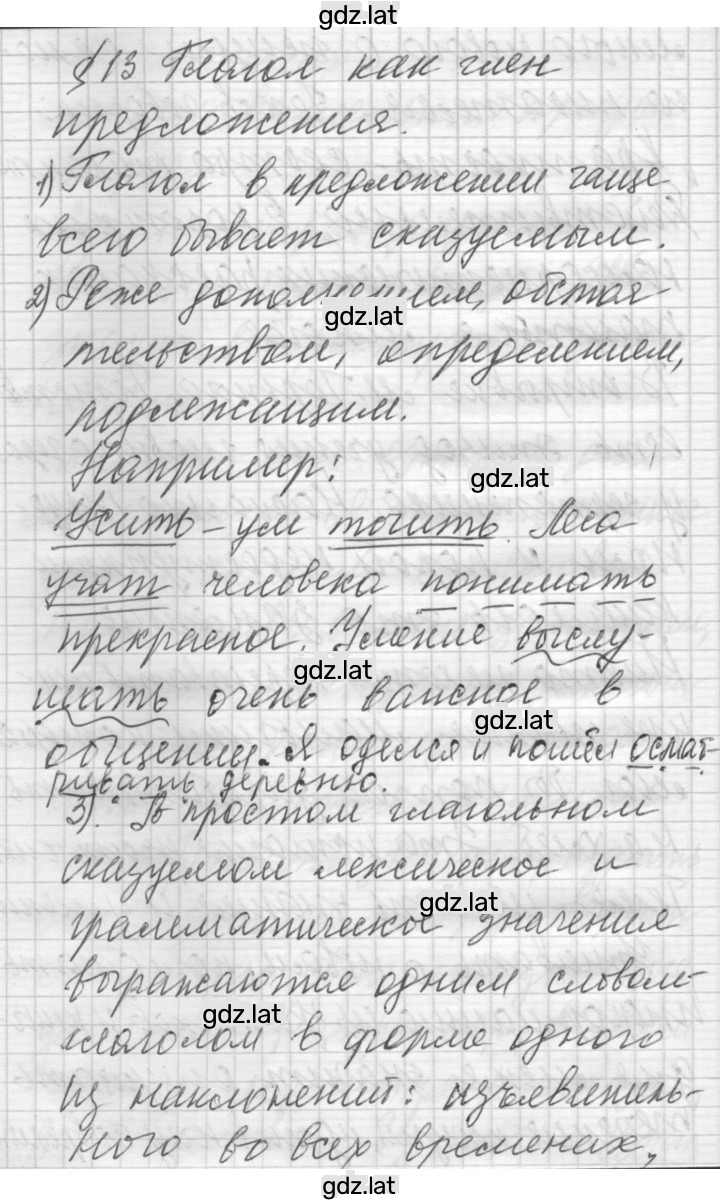 gdz.lat
§ 13 Глагол как член
предложения.
1) Глагол в предложении чаще
всего бывает сказуемым.
2) Реже дополнением, обстоя-
gdz.lat
тельством, определением,
подлежащим.
Например:
gdz.lat
Учить – ум точить. Леса
учат человека понимать
прекрасное. Умение выслу-
gdz.lat
шать очень важное в
gdz.lat
общении. Я оделся и пошёл осмат-
ривать деревню.
3). В простом глагольном
сказуемом лексическое и
gdz.lat
грамматическое значения
выражаются одним словом-
gdz.lat
глаголом в форме одного
из наклонений: изъявитель-
ного во всех временах,
gdz.lat